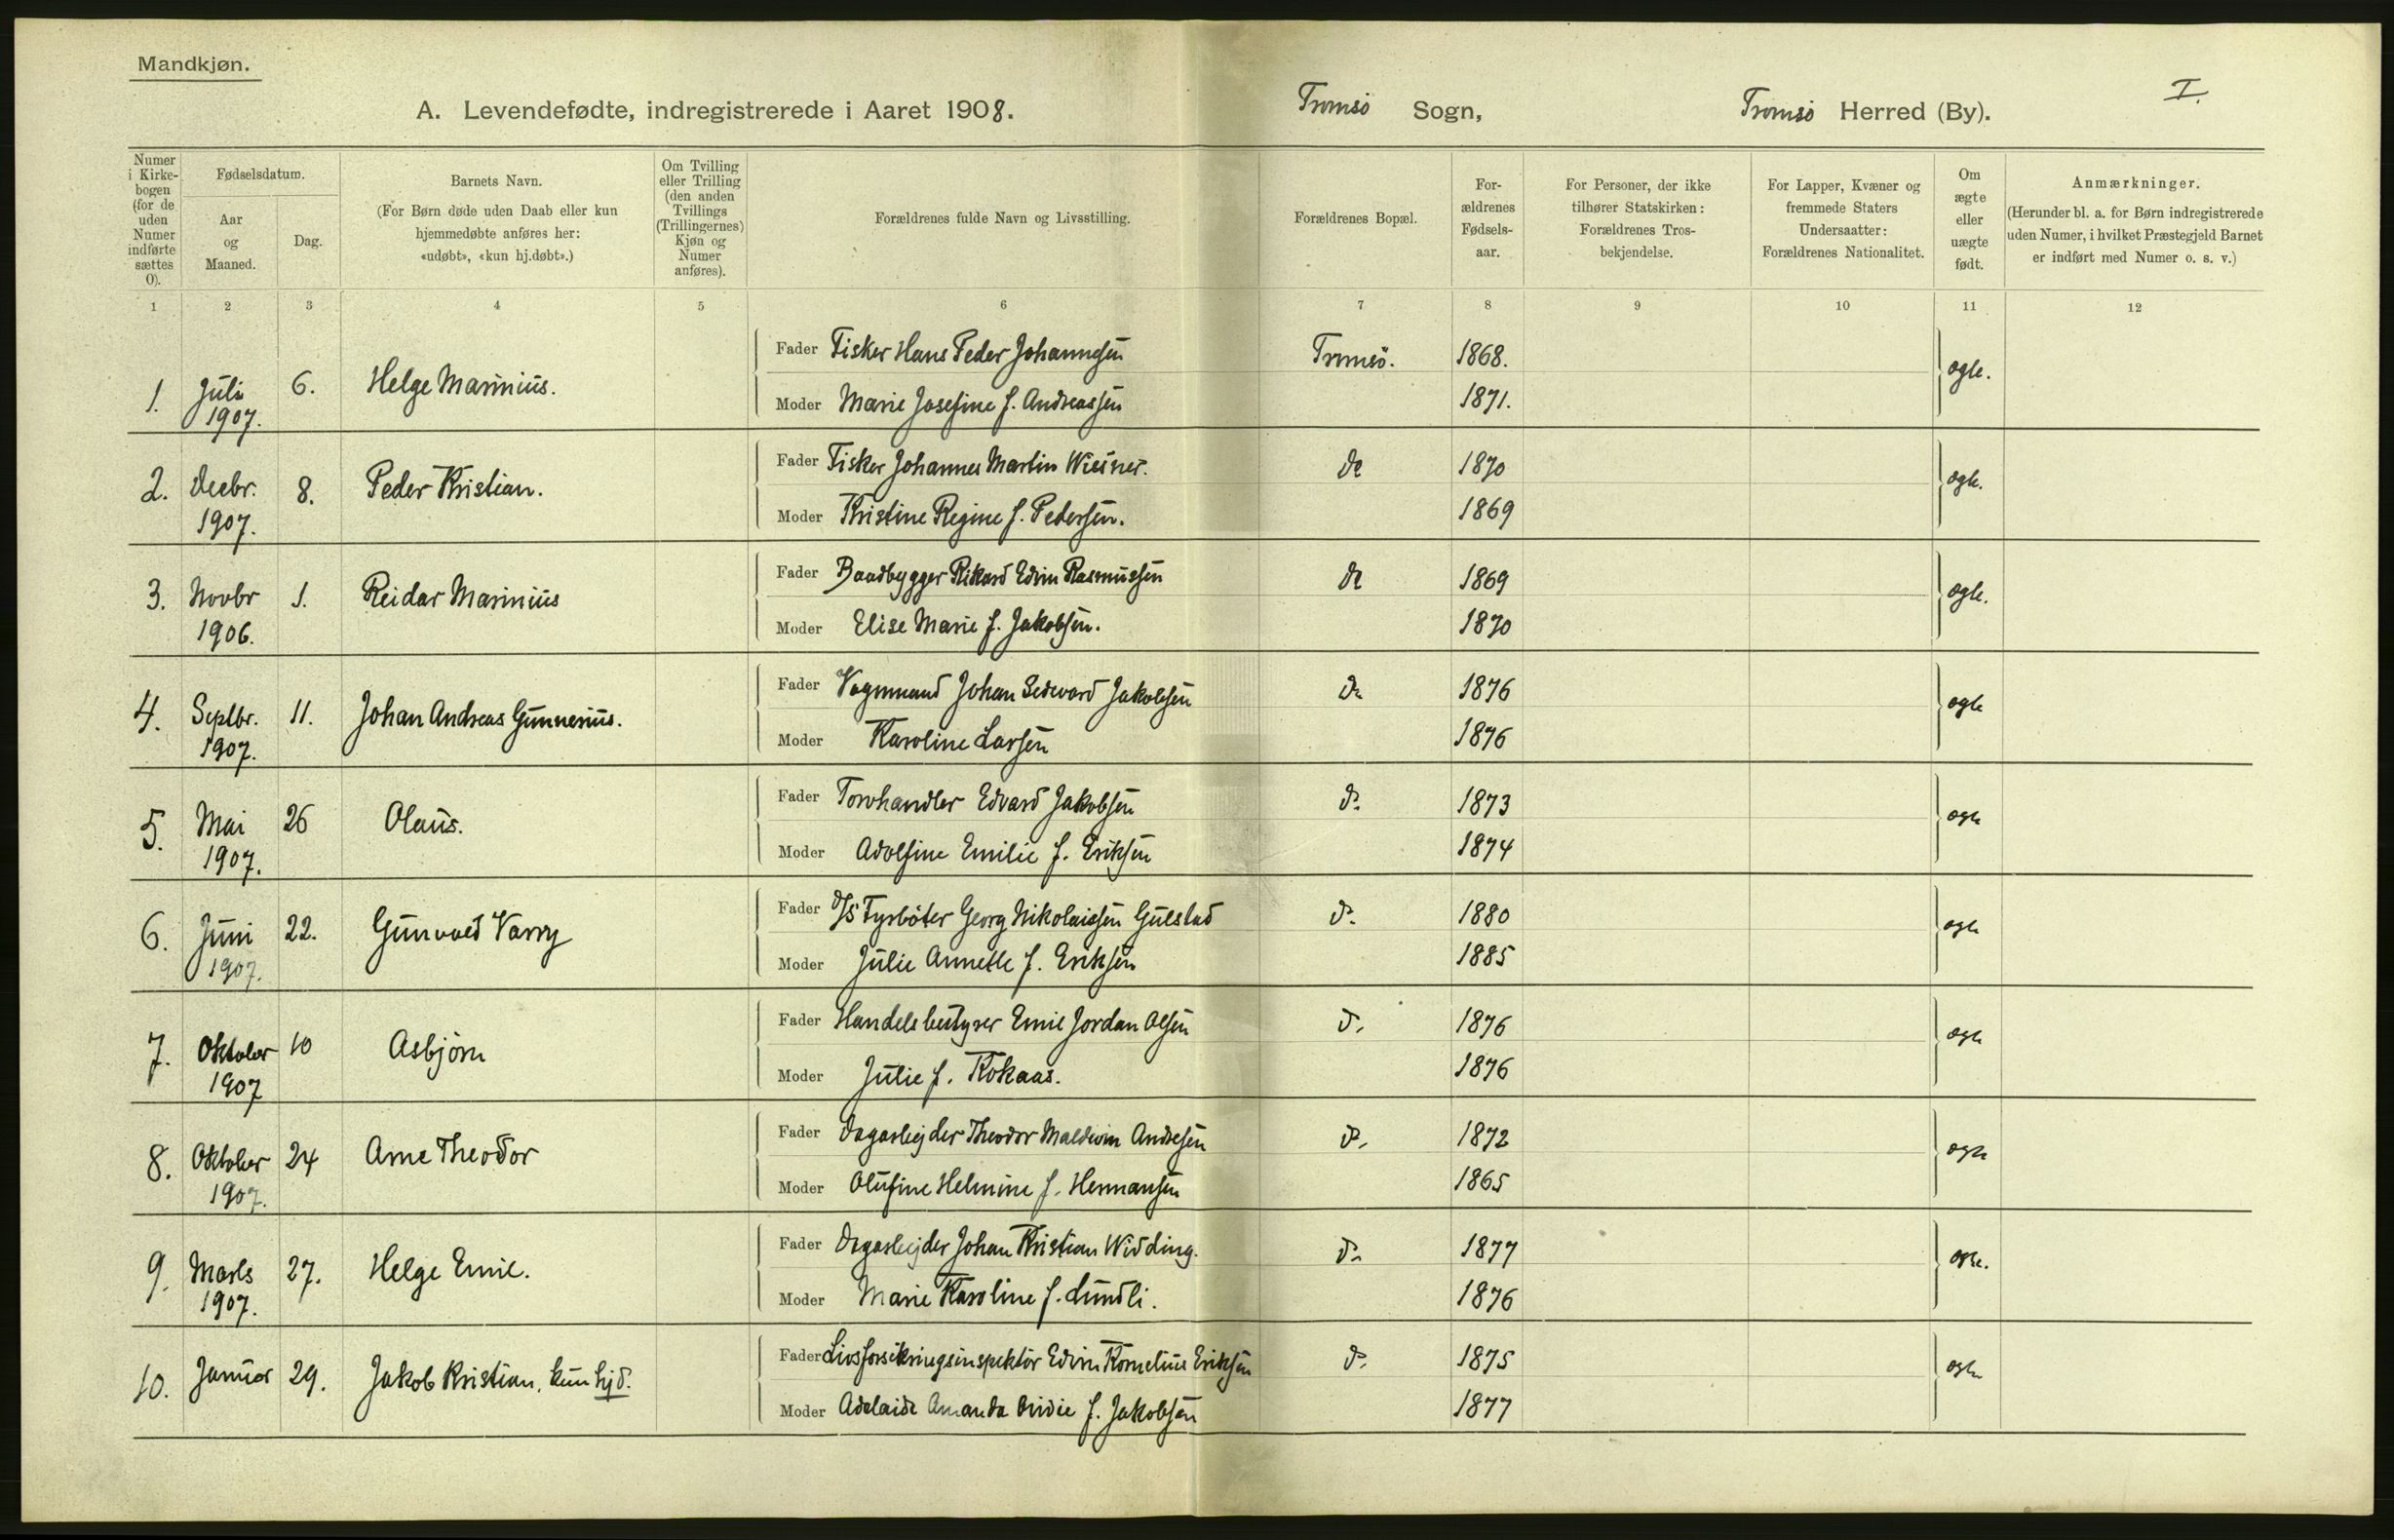 Mandkjøn.
A. Levendefødte, indregistrerede i Aaret 1908.
Tromsö Sogn,
Tromsö Herred (By).
I.
Numer i Kirke-bogen (for de uden Numer indførte sættes O).
Fødselsdatum.
Aar og Maaned.
Dag.
Barnets Navn.
(For Børn døde uden Daab eller kun hjemmedøbte anføres her: «udøbt», «kun hj.døbt».)
Om Tvilling eller Trilling (den anden Tvillings (Trillingernes) Kjøn og Numer anføres).
Forældrenes fulde Navn og Livsstilling.
Forældrenes Bopæl.
For-ældrenes Fødsels-aar.
For Personer, der ikke tilhører Statskirken: Forældrenes Tros-bekjendelse.
For Lapper, Kvæner og fremmede Staters Undersaatter: Forældrenes Nationalitet.
Om ægte eller uægte født.
Anmærkninger.
(Herunder bl. a. for Børn indregistrerede uden Numer, i hvilket Præstegjeld Barnet er indført med Numer o. s. v.)
1 2 3 4 5 6 7 8 9 10 11 12
Fader Fisker Hans Peder Johannesen Tromsö. 1868.
1. Juli 1907. 6. Helge Marinius. ægte.
Moder Marie Josefine f. Andreassen 1871.
Fader Fisker Johannes Martin Wiesner. do 1870
2. Decbr. 1907. 8. Peder Kristian. ægte.
Moder Kristine Regine f. Pedersen. 1869
Fader Baadbygger Rikard Edvin Rasmussen do 1869
3. Novbr 1906. 1. Reidar Marinius ægte.
Moder Elise Marie f. Jakobsen. 1870
Fader Vognmand Johan Sedvard Jakobsen do 1876
4. Septbr. 1907. 11. Johan Andreas Gunnerius. ægte
Moder Karoline Larsen 1876
Fader Torvhandler Edvard Jakobsen do 1873
5. Mai 1907. 26 Olaus. ægte
Moder Adolfine Emilie f. Eriksen 1874
Fader D/S Fyrböter Georg Nikolaisen Gulstad do 1880
6. Juni 1907. 22. Gunvald Varry ægte
Moder Julie Annette f. Eriksen 1885
Fader Handelsbestyrer Emil Jordan Olsen do 1876
7. Oktober 1907 10 Asbjörn ægte
Moder Julie f. Kokaas. 1876
Fader Dagarbejder Theodor Maldevin Andresen do 1872
8. Oktober 1907. 24 Arne Theodor ægte
Moder Olufine Helmine f. Hermansen 1865
Fader Dagarbejder Johan Kristian Widding. do 1877
9. Marts 1907. 27. Helge Emil. ægte.
Moder Marie Karoline f. Lundli. 1876
Fader Livsforsikringsinspektör Edvin Kornelius Eriksen do 1875
10. Januar 29. Jakob Kristian, kun hjd. ægte
Moder Adelaide Amanda f. Jakobsen 1877